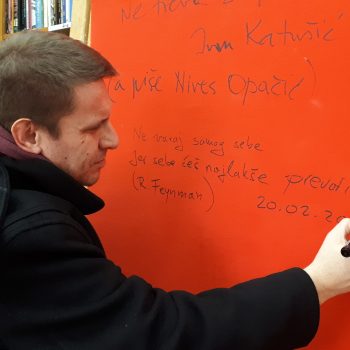 Ivan Katušić
(a piše Nives Opačić)
Ne varaj samog sebe
Jer sebe ćeš najlakše prevar
(R. Feynman)
20.02.20